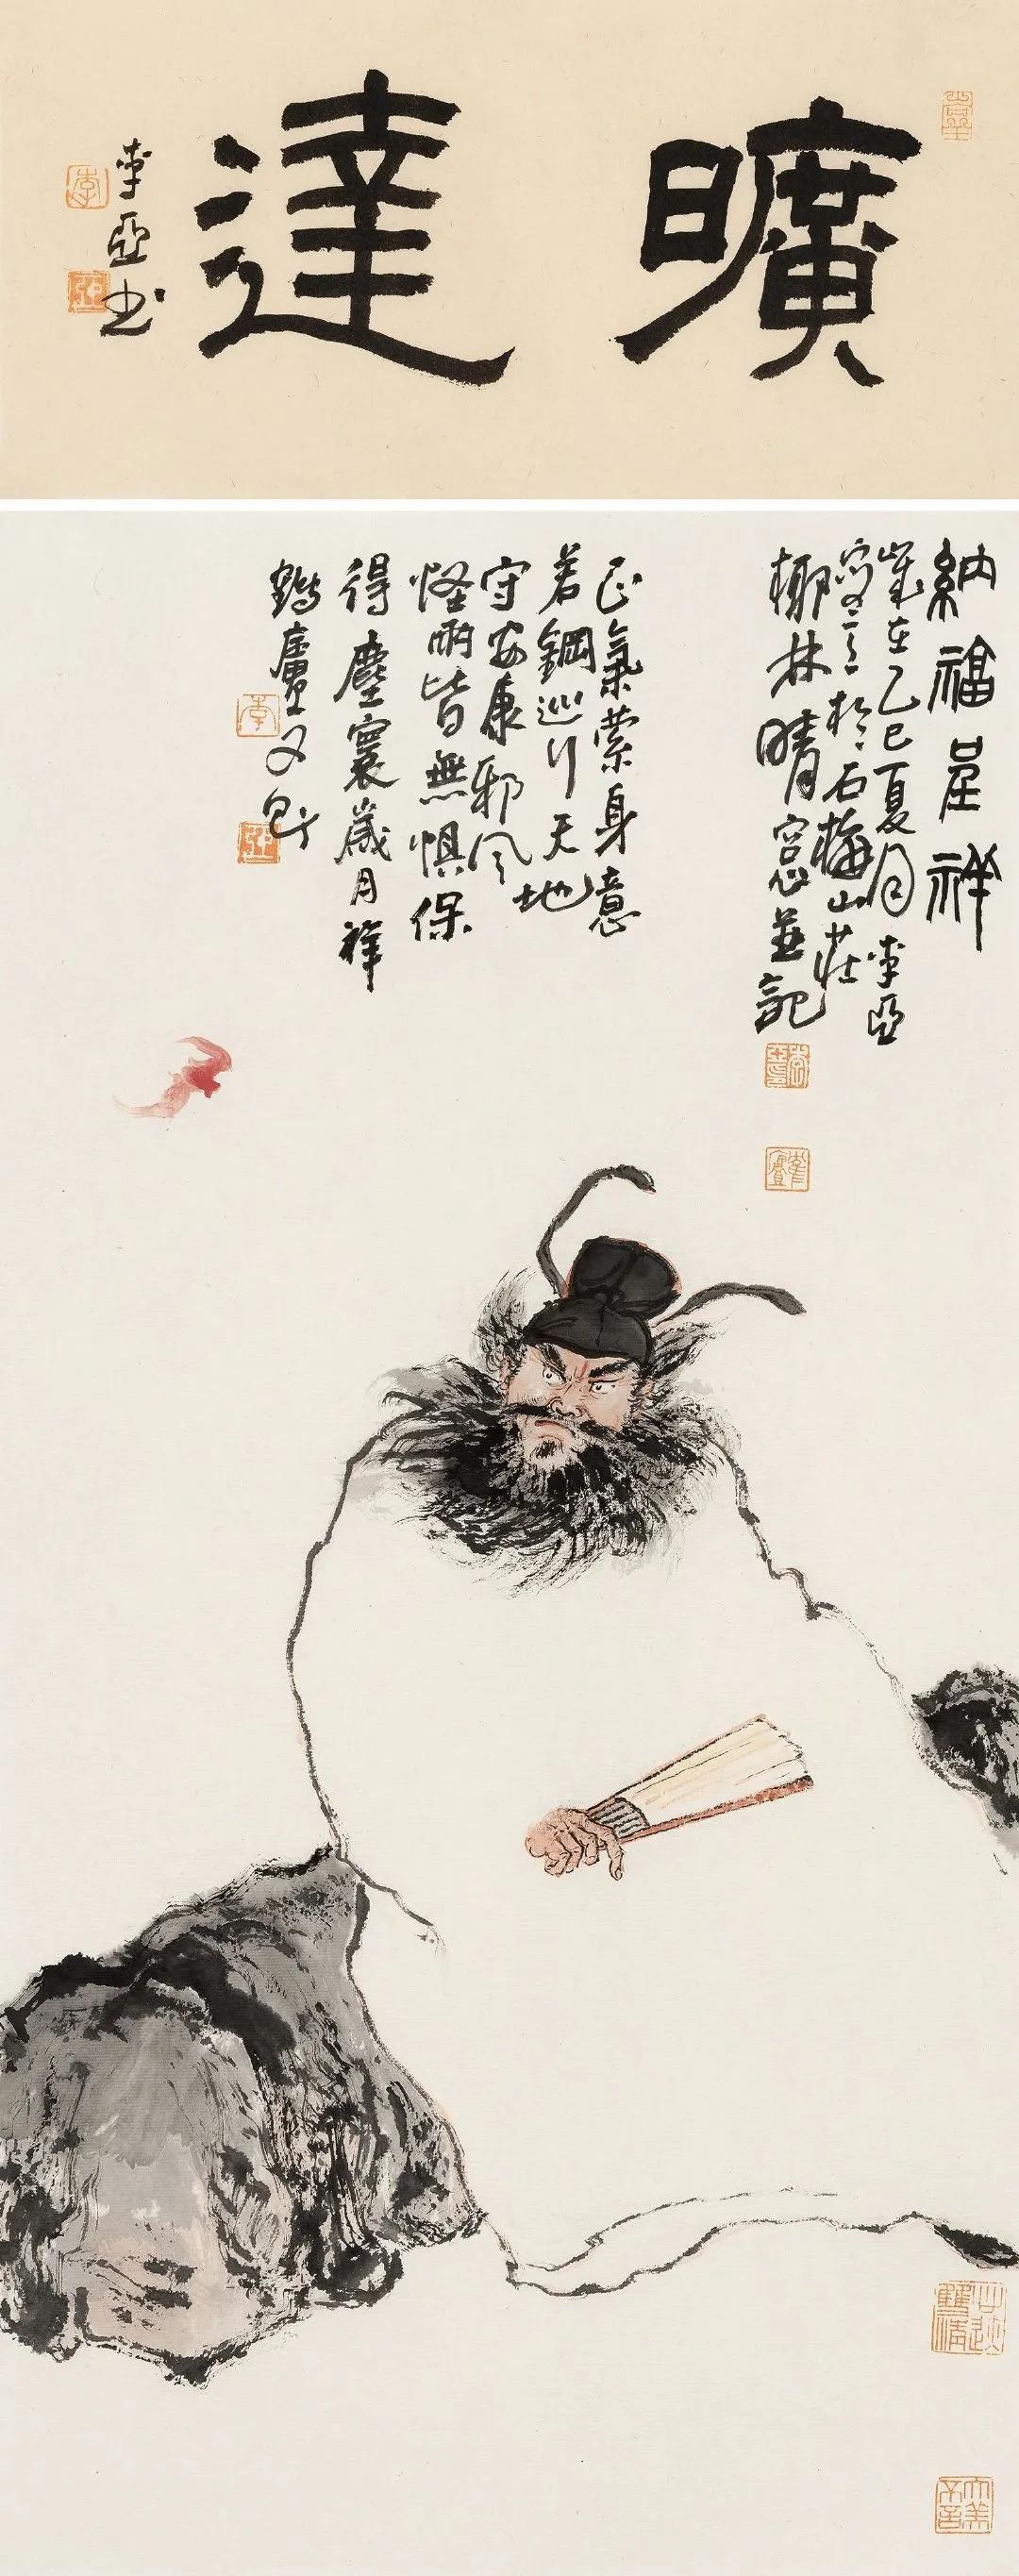 曠達
李亞書
納福呈祥
歲在乙巳夏月李亞
寫於石梅山莊
柳林晴窗並記
正氣縈身意
若鋼巡行天地
守安康邪風
怪雨皆無懼保
得塵寰歲月祥
鶴廬又題